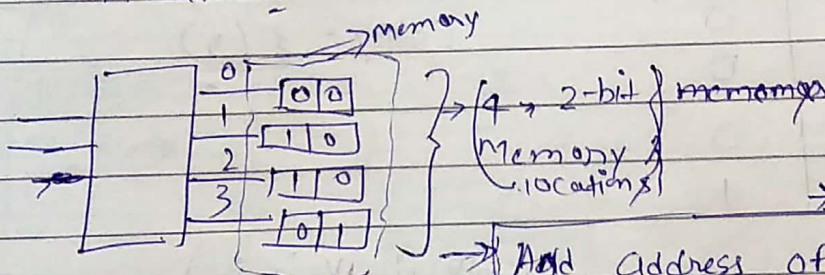 memory
0 0 0
1 1 0
2 1 0
3 0 1
4 → 2-bit
Memory
locations
Add address of